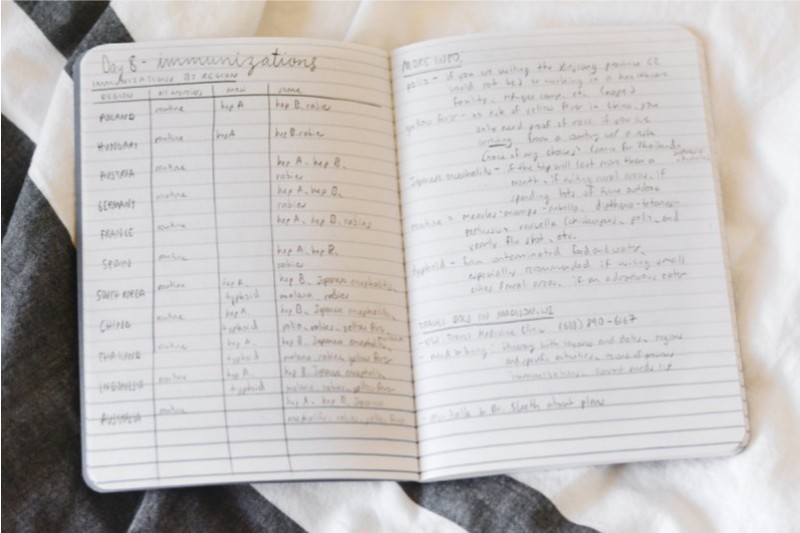 Day 8 - immunizations
IMMUNIZATIONS BY REGION
REGION all countries most some
POLAND routine hep A hep B, rabies
HUNGARY routine hep A hep B, rabies
AUSTRIA routine hep A, hep B,
rabies
GERMANY routine hep A, hep B,
rabies
FRANCE routine hep A, hep B, rabies
SPAIN routine hep A, hep B,
rabies
SOUTH KOREA routine hep A, hep B, Japanese encephalitis
typhoid malaria, rabies
CHINA routine hep A, hep B, Japanese encephalitis
typhoid polio, rabies, yellow fever
THAILAND routine hep A, hep B, Japanese encephalitis
typhoid malaria, rabies, yellow fever
INDONESIA routine hep A, hep B, Japanese encephalitis
typhoid malaria, rabies, yellow fever
AUSTRALIA routine hep A, hep B, Japanese
encephalitis, rabies, yellow fever
MORE INFO:
polio - if you are visiting the Xinjiang province or
would be working in a healthcare
facility, refugee camp, etc. (nope)
yellow fever - no risk of yellow fever in China, you
only need proof of vacc. if you are
arriving from a country w/ a risk
(none of my stops) (same for Thailand,
Japanese encephalitis - if the trip will last more than a
month, if visiting rural areas, if
spending lots of time outdoors
routine = measles-mumps-rubella, diptheria-tetanus-
pertussis, varicella (chickenpox), polio, and
yearly flu shot, etc.
typhoid - from contaminated food and water,
especially recommended if visiting small
cities/rural areas, if an adventurous eater
TRAVEL DOCS IN MADISON, WI
Travel Medicine Clinic (608) 890-
need to bring: itinerary with seasons and dates, regions
and specific activities, record of previous
immunizations, current meds
talk to Dr. about plans